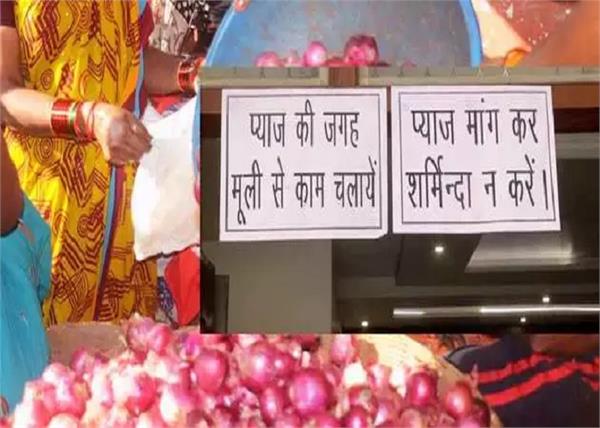 प्याज की जगह
मूली से काम चलायें
प्याज मांग कर
शर्मिन्दा न करें।